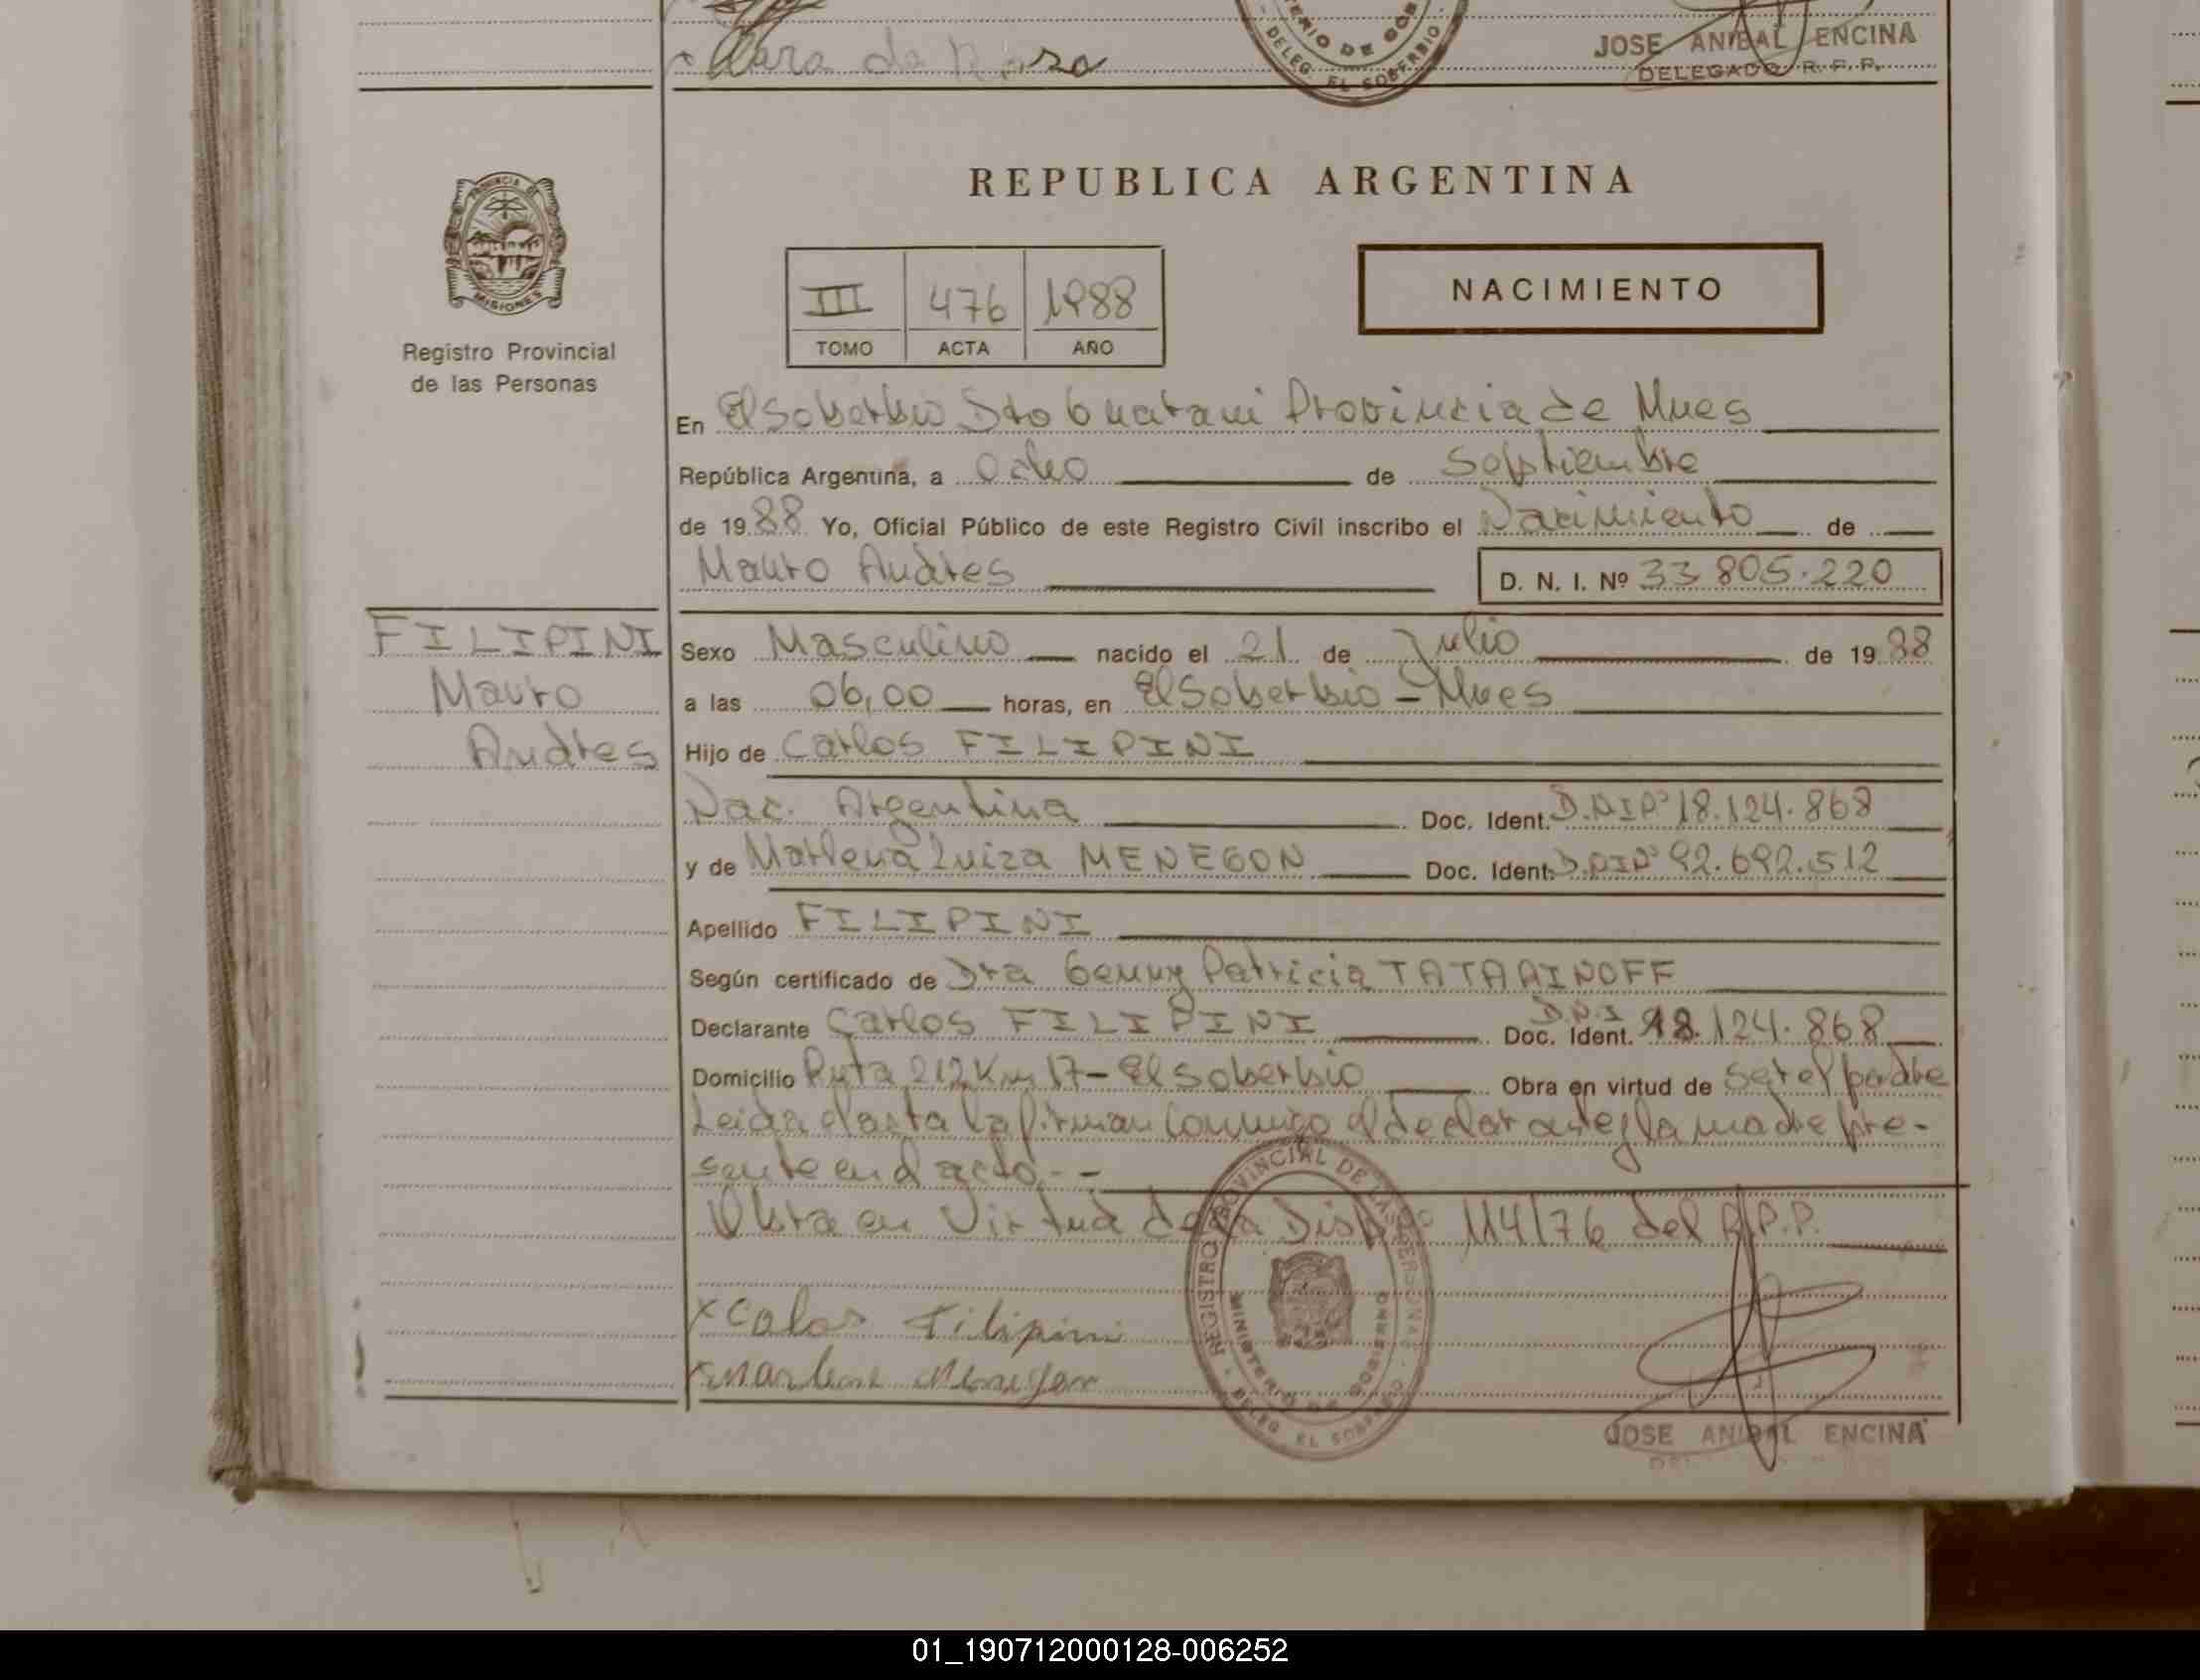 Clara da Rosa
MINISTERIO DE GOB
DELEG. EL SOBERBIO
JOSE ANIBAL ENCINA
DELEGADO R. P. P.
PROVINCIA DE
MISIONES
Registro Provincial
de las Personas
REPUBLICA ARGENTINA
III 476 1988
TOMO ACTA AÑO
NACIMIENTO
En El Soberbio Dto Guarani Provincia de Mnes
República Argentina, a Ocho de Septiembre
de 1988 Yo, Oficial Público de este Registro Civil inscribo el Nacimiento de
Mauro Andres D. N. I. Nº 33 805.220
FILIPINI
Mauro
Andres
Sexo Masculino nacido el 21 de Julio de 1988
a las 06,00 horas, en El Soberbio - Mnes
Hijo de Carlos FILIPINI
Nac. Argentina Doc. Ident. D.N.I Nº 18.124.868
y de Marlena Luiza MENEGON Doc. Ident. D.N.I Nº 92.692.512
Apellido FILIPINI
Según certificado de Dra Genny Patricia TATARINOFF
Declarante Carlos FILIPINI Doc. Ident. D.N.I 18.124.868
Domicilio Ruta 212 Km 17 - El Soberbio Obra en virtud de ser el padre
Leida el acta la firman conmigo el declarante y la madre pre-
sente en el acto.-
Obra en Virtud de la Disp. Nº 114/76 del R.P.P.
x Calos Filipini
x Marlene Menegon
REGISTRO PROVINCIAL DE LAS PERSONAS
MINISTERIO DE GOBIERNO
DELEG. EL SOBERBIO
JOSE ANIBAL ENCINA
01_190712000128-006252